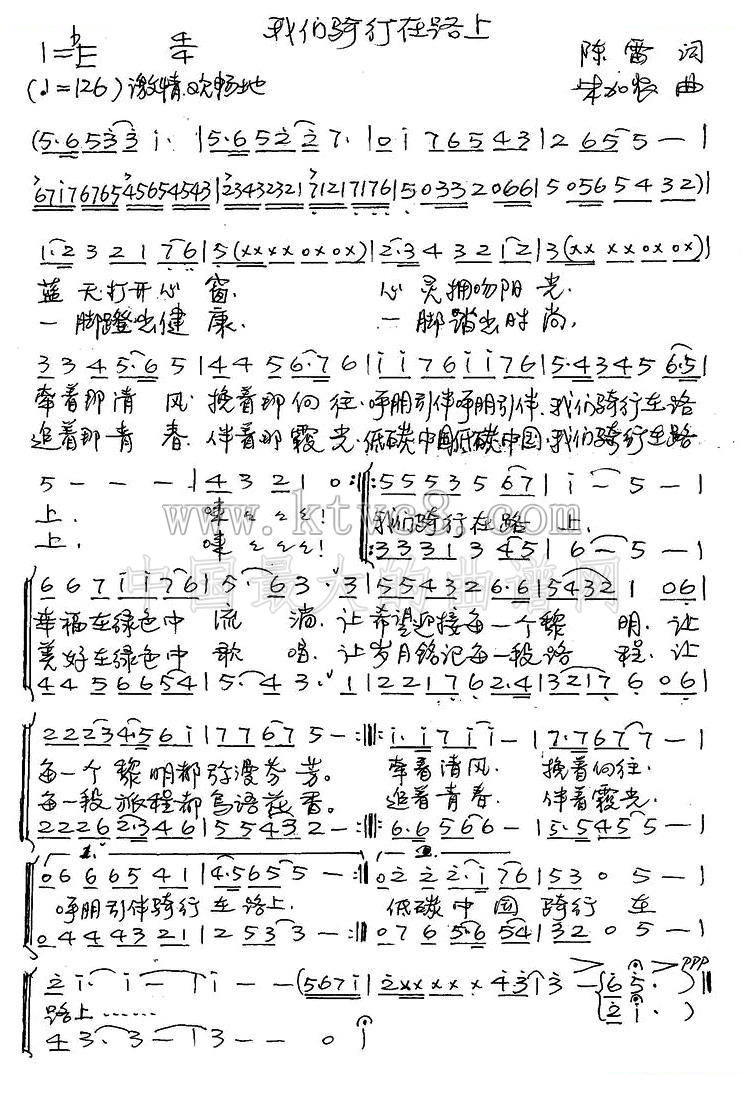 我们骑行在路上
1=♭E 4/4
陈雷 词
(♩=126) 激情.欢畅地
朱加农 曲
(5·6 5 3 3 i· | 5·6 5 2 2 7· | 0 i 7 6 5 4 3 | 2 6 5 5 — |
6 7 i 7 6 7 6 5 4 5 6 5 4 5 4 3 | 2 3 4 3 2 3 2 1 7 1 2 1 7 1 7 6 | 5 0 3 3 2 0 6 6 | 5 0 5 6 5 4 3 2) |
1·2 3 2 1 7 6 | 5 (x x x x 0 x 0 x) | 2·3 4 3 2 1 2 | 3 (x x x x 0 x 0 x) |
蓝天打开心窗. 心灵拥吻阳光.
一脚蹬出健康. 一脚踏出时尚,
3 3 4 5·6 5 | 4 4 5 6·7 6 | i i 7 6 i i 7 6 | 5·4 3 4 5 6·5 |
牵着那清风.挽着那向往.呼朋引伴呼朋引伴.我们骑行在路
追着那青春.伴着那霞光.低碳中国低碳中国.我们骑行在路
5 — — — | 4 3 2 1 0 :||: 5 5 5 3 5 6 7 | i — 5 — |
上. 味 我们骑行在路上.
上. 味
3 3 3 1 3 4 5 | 6 — 5 — |
www.ktvc8.com
中国最大的曲谱网
6 6 7 i i 7 6 | 5· 6 3 · 3 | 5 5 4 3 2 6·6 | 5 4 3 2 1 0 6 |
幸福在绿色中流淌.让希望迎接每一个黎明.让
美好在绿色中歌唱.让岁月铭记每一段路程.让
4 4 5 6 6 5 4 | 5· 4 3 · 1 | 2 2 1 7 6 2·4 | 3 2 1 7 6 0 6 |
2 2 2 3 4·5 6 i | 7 7 6 7 5 — :||: i·i 7 i i — | 7·7 6 7 7 — |
每一个黎明都弥漫芬芳。 牵着清风. 挽着向往.
每一段旅程都鸟语花香。 追着青春. 伴着霞光.
2 2 2 6 2·3 4 6 | 5 5 4 3 2 — :||: 6·6 5 6 6 — | 5·5 4 5 5 — |
0 6 6 6 5 4 1 | 4·5 6 5 5 — :|| 0 2 2 2·i 7 6 | 5 3 0 5 — |
呼朋引伴骑行在路上. 低碳中国骑行在
0 4 4 4 3 2 1 | 2 5 3 3 — :|| 0 7 6 5·6 5 4 | 3 2 0 5 — |
2 i· i — | i — — (5 6 7 i | 2 x x x x x 4 3 | 3 — 6 5· ppp) ||
路上……
4 3· 3 — | 3 — — 0 i | 2 i· )